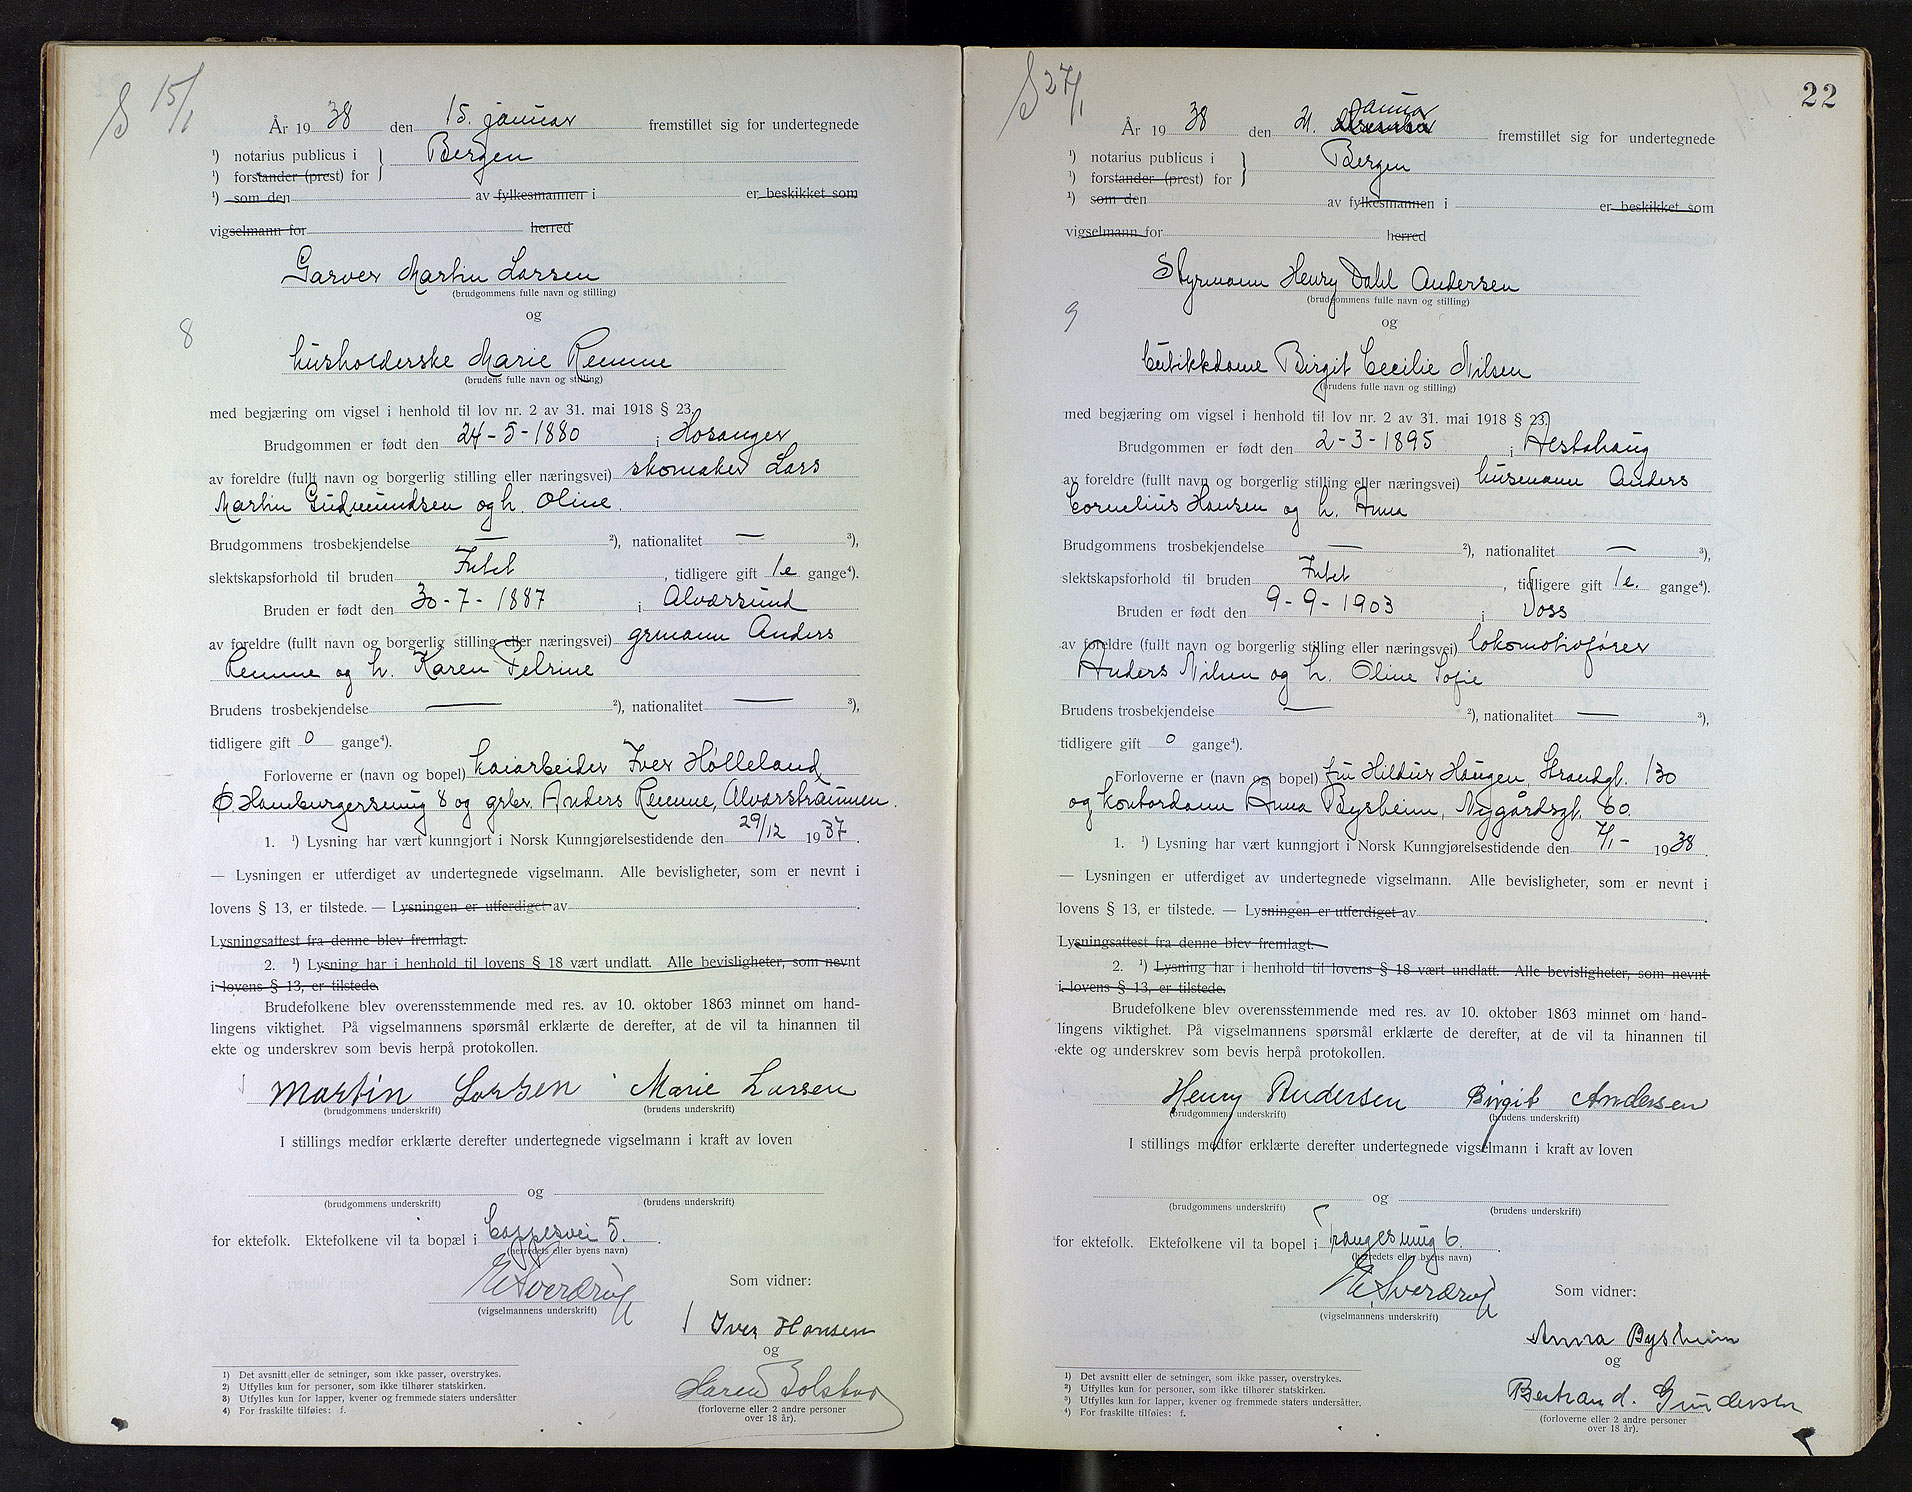 § 15/1
År 1938 den 15. januar fremstillet sig for undertegnede
¹) notarius publicus i } Bergen
¹) forstander (prest) for
¹) som den av fylkesmannen i er beskikket som
vigselmann for herred
Garver Martin Larsen
(brudgommens fulle navn og stilling)
og
8
husholderske Marie Remme
(brudens fulle navn og stilling)
med begjæring om vigsel i henhold til lov nr. 2 av 31. mai 1918 § 23.
Brudgommen er født den 24-5-1880 i Hosanger
av foreldre (fullt navn og borgerlig stilling eller næringsvei) skomaker Lars
Martin Gudmundsen og h. Oline.
Brudgommens trosbekjendelse — ²), nationalitet — ³),
slektskapsforhold til bruden Intet, tidligere gift 1e gange⁴).
Bruden er født den 30-7-1887 i Alversund
av foreldre (fullt navn og borgerlig stilling eller næringsvei) grmann Anders
Remme og h. Karen Petrine
Brudens trosbekjendelse — ²), nationalitet — ³),
tidligere gift 0 gange⁴).
Forloverne er (navn og bopel) kaiarbeider Iver Hølleland
Ø. Hamburgersmug 8 og grbr. Anders Remme, Alverstraumen.
1. ¹) Lysning har vært kunngjort i Norsk Kunngjørelsestidende den 29/12 1937.
— Lysningen er utferdiget av undertegnede vigselmann. Alle bevisligheter, som er nevnt i
lovens § 13, er tilstede. — Lysningen er utferdiget av .
Lysningsattest fra denne blev fremlagt.
2. ¹) Lysning har i henhold til lovens § 18 vært undlatt. Alle bevisligheter, som nevnt
i lovens § 13, er tilstede.
Brudefolkene blev overensstemmende med res. av 10. oktober 1863 minnet om hand-
lingens viktighet. På vigselmannens spørsmål erklærte de derefter, at de vil ta hinannen til
ekte og underskrev som bevis herpå protokollen.
Martin Larsen Marie Larsen
(brudgommens underskrift) (brudens underskrift)
I stillings medfør erklærte derefter undertegnede vigselmann i kraft av loven
og
(brudgommens underskrift) (brudens underskrift)
for ektefolk. Ektefolkene vil ta bopæl i Coppesvei 5.
(herredets eller byens navn)
E Sverdrup Som vidner:
(vigselmannens underskrift)
Iver Hansen
og
Bolstad
(forloverne eller 2 andre personer
over 18 år).
1) Det avsnitt eller de setninger, som ikke passer, overstrykes.
2) Utfylles kun for personer, som ikke tilhører statskirken.
3) Utfylles kun for lapper, kvener og fremmede staters undersåtter
4) For fraskilte tilføies: f.
22
§ 27/1
År 1938 den 21. januar fremstillet sig for undertegnede
¹) notarius publicus i } Bergen
¹) forstander (prest) for
¹) som den av fylkesmannen i er beskikket som
vigselmann for herred
Styrmann Henry Dahl Andersen
(brudgommens fulle navn og stilling)
og
9
butikkdame Birgit Cecilie Nilsen
(brudens fulle navn og stilling)
med begjæring om vigsel i henhold til lov nr. 2 av 31. mai 1918 § 23.
Brudgommen er født den 2-3-1895 i Alstahaug
av foreldre (fullt navn og borgerlig stilling eller næringsvei) husmann Anders
Cornelius Hansen og h. Anna
Brudgommens trosbekjendelse — ²), nationalitet — ³),
slektskapsforhold til bruden Intet, tidligere gift 1e. gange⁴).
Bruden er født den 9-9-1903 i Voss
av foreldre (fullt navn og borgerlig stilling eller næringsvei) lokomotivfører
Anders Nilsen og h. Oline Sofie
Brudens trosbekjendelse — ²), nationalitet — ³),
tidligere gift 0 gange⁴).
Forloverne er (navn og bopel) fru Hildur Haugen, Strandgt. 130
og kontordame Anna Bysheim, Nygårdsgt. 60.
1. ¹) Lysning har vært kunngjort i Norsk Kunngjørelsestidende den 7/1- 1938.
— Lysningen er utferdiget av undertegnede vigselmann. Alle bevisligheter, som er nevnt i
lovens § 13, er tilstede. — Lysningen er utferdiget av .
Lysningsattest fra denne blev fremlagt.
2. ¹) Lysning har i henhold til lovens § 18 vært undlatt. Alle bevisligheter, som nevnt
i lovens § 13, er tilstede.
Brudefolkene blev overensstemmende med res. av 10. oktober 1863 minnet om hand-
lingens viktighet. På vigselmannens spørsmål erklærte de derefter, at de vil ta hinannen til
ekte og underskrev som bevis herpå protokollen.
Henry Andersen Birgit Andersen
(brudgommens underskrift) (brudens underskrift)
I stillings medfør erklærte derefter undertegnede vigselmann i kraft av loven
og
(brudgommens underskrift) (brudens underskrift)
for ektefolk. Ektefolkene vil ta bopel i Trangesmug 6.
(herredets eller byens navn)
E Sverdrup Som vidner:
(vigselmannens underskrift)
Anna Bysheim
og
Bertrand. Gundersen
(forloverne eller 2 andre personer
over 18 år).
1) Det avsnitt eller de setninger, som ikke passer, overstrykes.
2) Utfylles kun for personer, som ikke tilhører statskirken.
3) Utfylles kun for lapper, kvener og fremmede staters undersåtter.
4) For fraskilte tilføies: f.